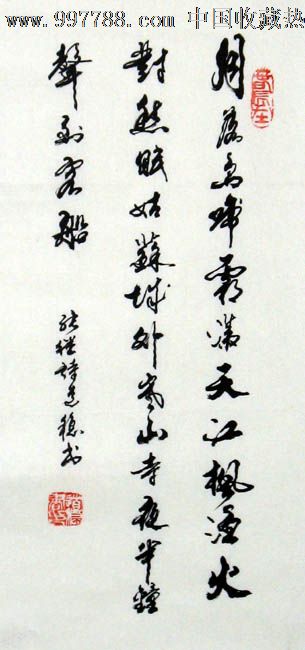 www.997788.com 中国收藏热
月落烏啼霜滿天江楓漁火
對愁眠姑蘇城外寒山寺夜半鐘
聲到客船
張繼詩 書